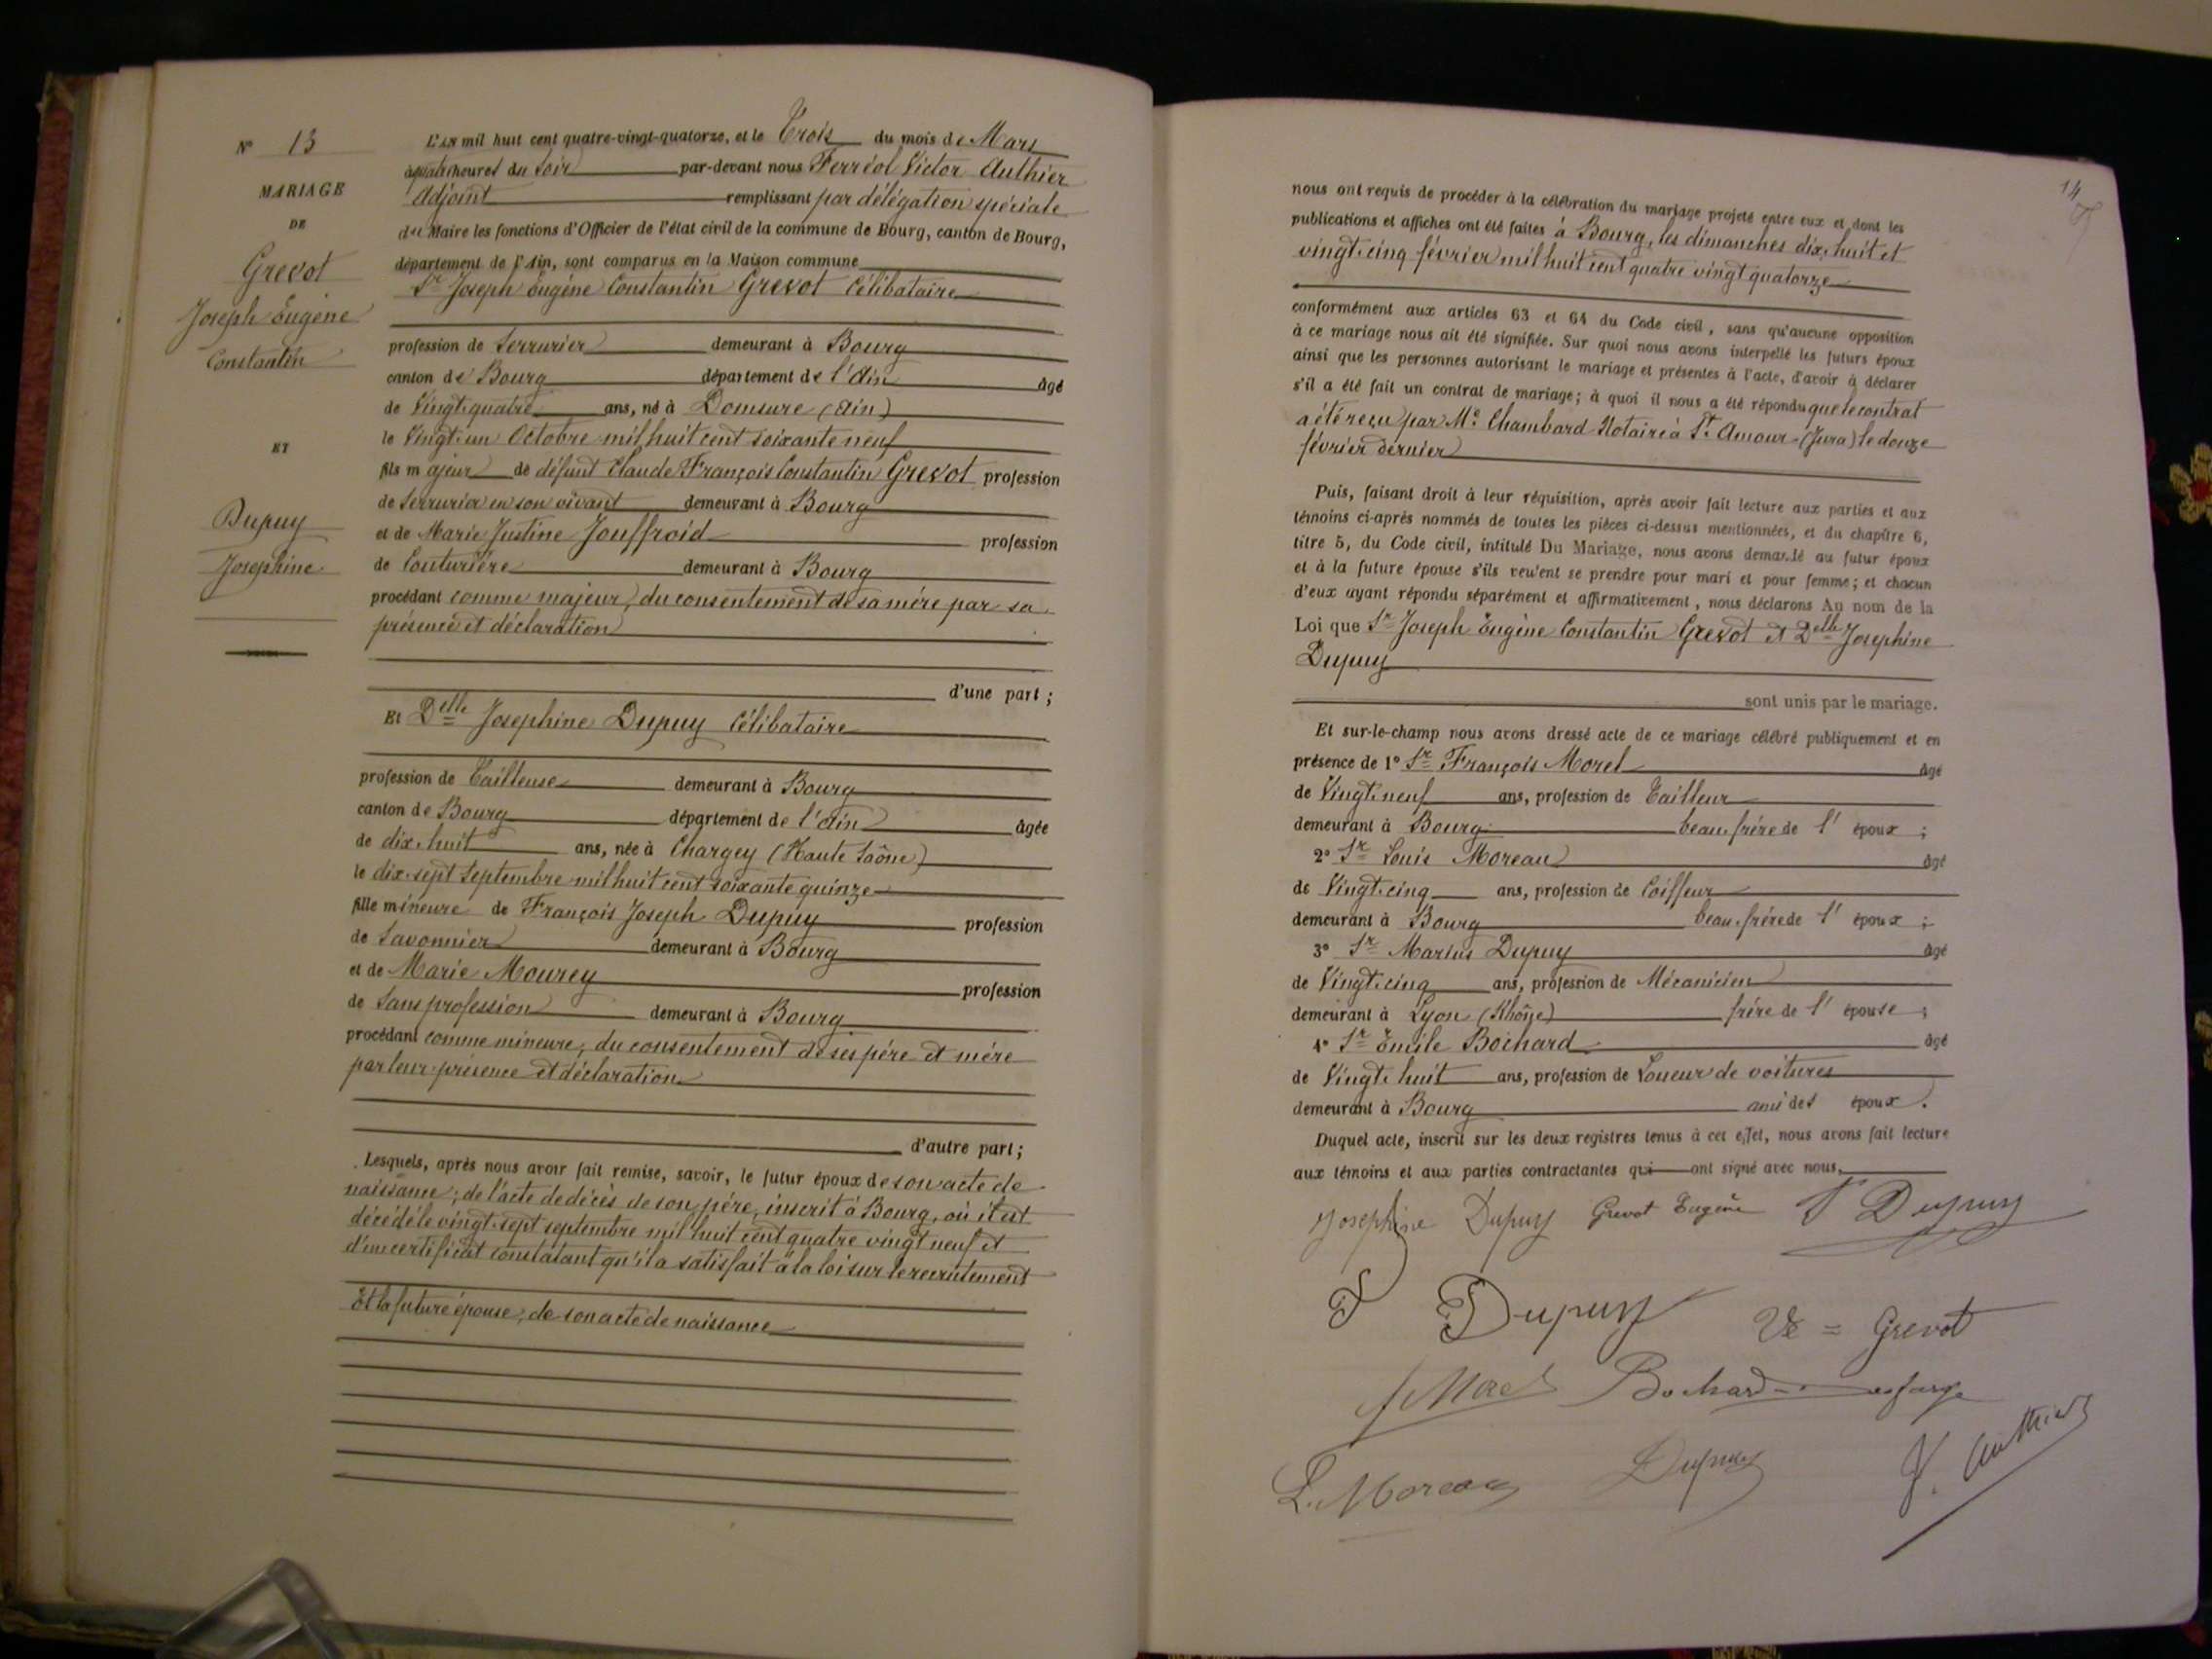 N° 13
MARIAGE
DE
Grevot
Joseph Eugène
Constantin
ET
Dupuy
Josephine
L'AN mil huit cent quatre-vingt-quatorze, et le Trois du mois de Mars
à quatre heures du Soir par-devant nous Ferréol Victor Authier
Adjoint remplissant par délégation spéciale
du Maire les fonctions d'Officier de l'état civil de la commune de Bourg, canton de Bourg,
département de l'Ain, sont comparus en la Maison commune
Sr Joseph Eugène Constantin Grevot Célibataire
profession de Serrurier demeurant à Bourg
canton de Bourg département de l'Ain âgé
de Vingt-quatre ans, né à Domsure (Ain)
le Vingt-un Octobre mil huit cent soixante neuf
fils majeur de défunt Claude François Constantin Grevot profession
de Serrurier en son vivant demeurant à Bourg
et de Marie Justine Jouffroid profession
de Couturière demeurant à Bourg
procédant comme majeur, du consentement de sa mère par sa
présence et déclaration
d'une part ;
Et Delle Josephine Dupuy Célibataire
profession de Tailleuse demeurant à Bourg
canton de Bourg département de l'Ain âgée
de dix-huit ans, née à Chargey (Haute Saône)
le dix-sept Septembre mil huit cent soixante quinze
fille mineure de François Joseph Dupuy profession
de Savonnier demeurant à Bourg
et de Marie Mourey profession
de Sans profession demeurant à Bourg
procédant comme mineure, du consentement de ses père et mère
par leur présence et déclaration
d'autre part ;
Lesquels, après nous avoir fait remise, savoir, le futur époux de son acte de
naissance ; de l'acte de décès de son père, inscrit à Bourg, où il est
décédé le vingt-sept septembre mil huit cent quatre vingt neuf et
d'un certificat constatant qu'il a satisfait à la loi sur le recrutement
Et la future épouse, de son acte de naissance
14
nous ont requis de procéder à la célébration du mariage projeté entre eux et dont les
publications et affiches ont été faites à Bourg, les dimanches dix-huit et
vingt-cinq février mil huit cent quatre vingt quatorze
conformément aux articles 63 et 64 du Code civil, sans qu'aucune opposition
à ce mariage nous ait été signifiée. Sur quoi nous avons interpellé les futurs époux
ainsi que les personnes autorisant le mariage et présentes à l'acte, d'avoir à déclarer
s'il a été fait un contrat de mariage ; à quoi il nous a été répondu que le contrat
a été reçu par Me Chambard Notaire à St Amour (Jura) le douze
février dernier
Puis, faisant droit à leur réquisition, après avoir fait lecture aux parties et aux
témoins ci-après nommés de toutes les pièces ci-dessus mentionnées, et du chapître 6,
titre 5, du Code civil, intitulé Du Mariage, nous avons demandé au futur époux
et à la future épouse s'ils veulent se prendre pour mari et pour femme ; et chacun
d'eux ayant répondu séparément et affirmativement, nous déclarons Au nom de la
Loi que Sr Joseph Eugène Constantin Grevot et Delle Josephine
Dupuy
sont unis par le mariage.
Et sur-le-champ nous avons dressé acte de ce mariage célébré publiquement et en
présence de 1° Sr François Morel âgé
de Vingt-neuf ans, profession de Tailleur
demeurant à Bourg beau-frère de l' époux ;
2° Sr Louis Moreau âgé
de Vingt-cinq ans, profession de Coiffeur
demeurant à Bourg beau-frère de l' époux ;
3° Sr Marius Dupuy âgé
de Vingt-cinq ans, profession de Mécanicien
demeurant à Lyon (Rhône) frère de l' épouse ;
4° Sr Émile Bochard âgé
de Vingt-huit ans, profession de Loueur de voitures
demeurant à Bourg ami des époux.
Duquel acte, inscrit sur les deux registres tenus à cet effet, nous avons fait lecture
aux témoins et aux parties contractantes qui ont signé avec nous.
Josephine Dupuy Grevot Eugène Dupuy
Dupuy Ve = Grevot
Morel Bochard
L. Moreau Dupuy F. Authier